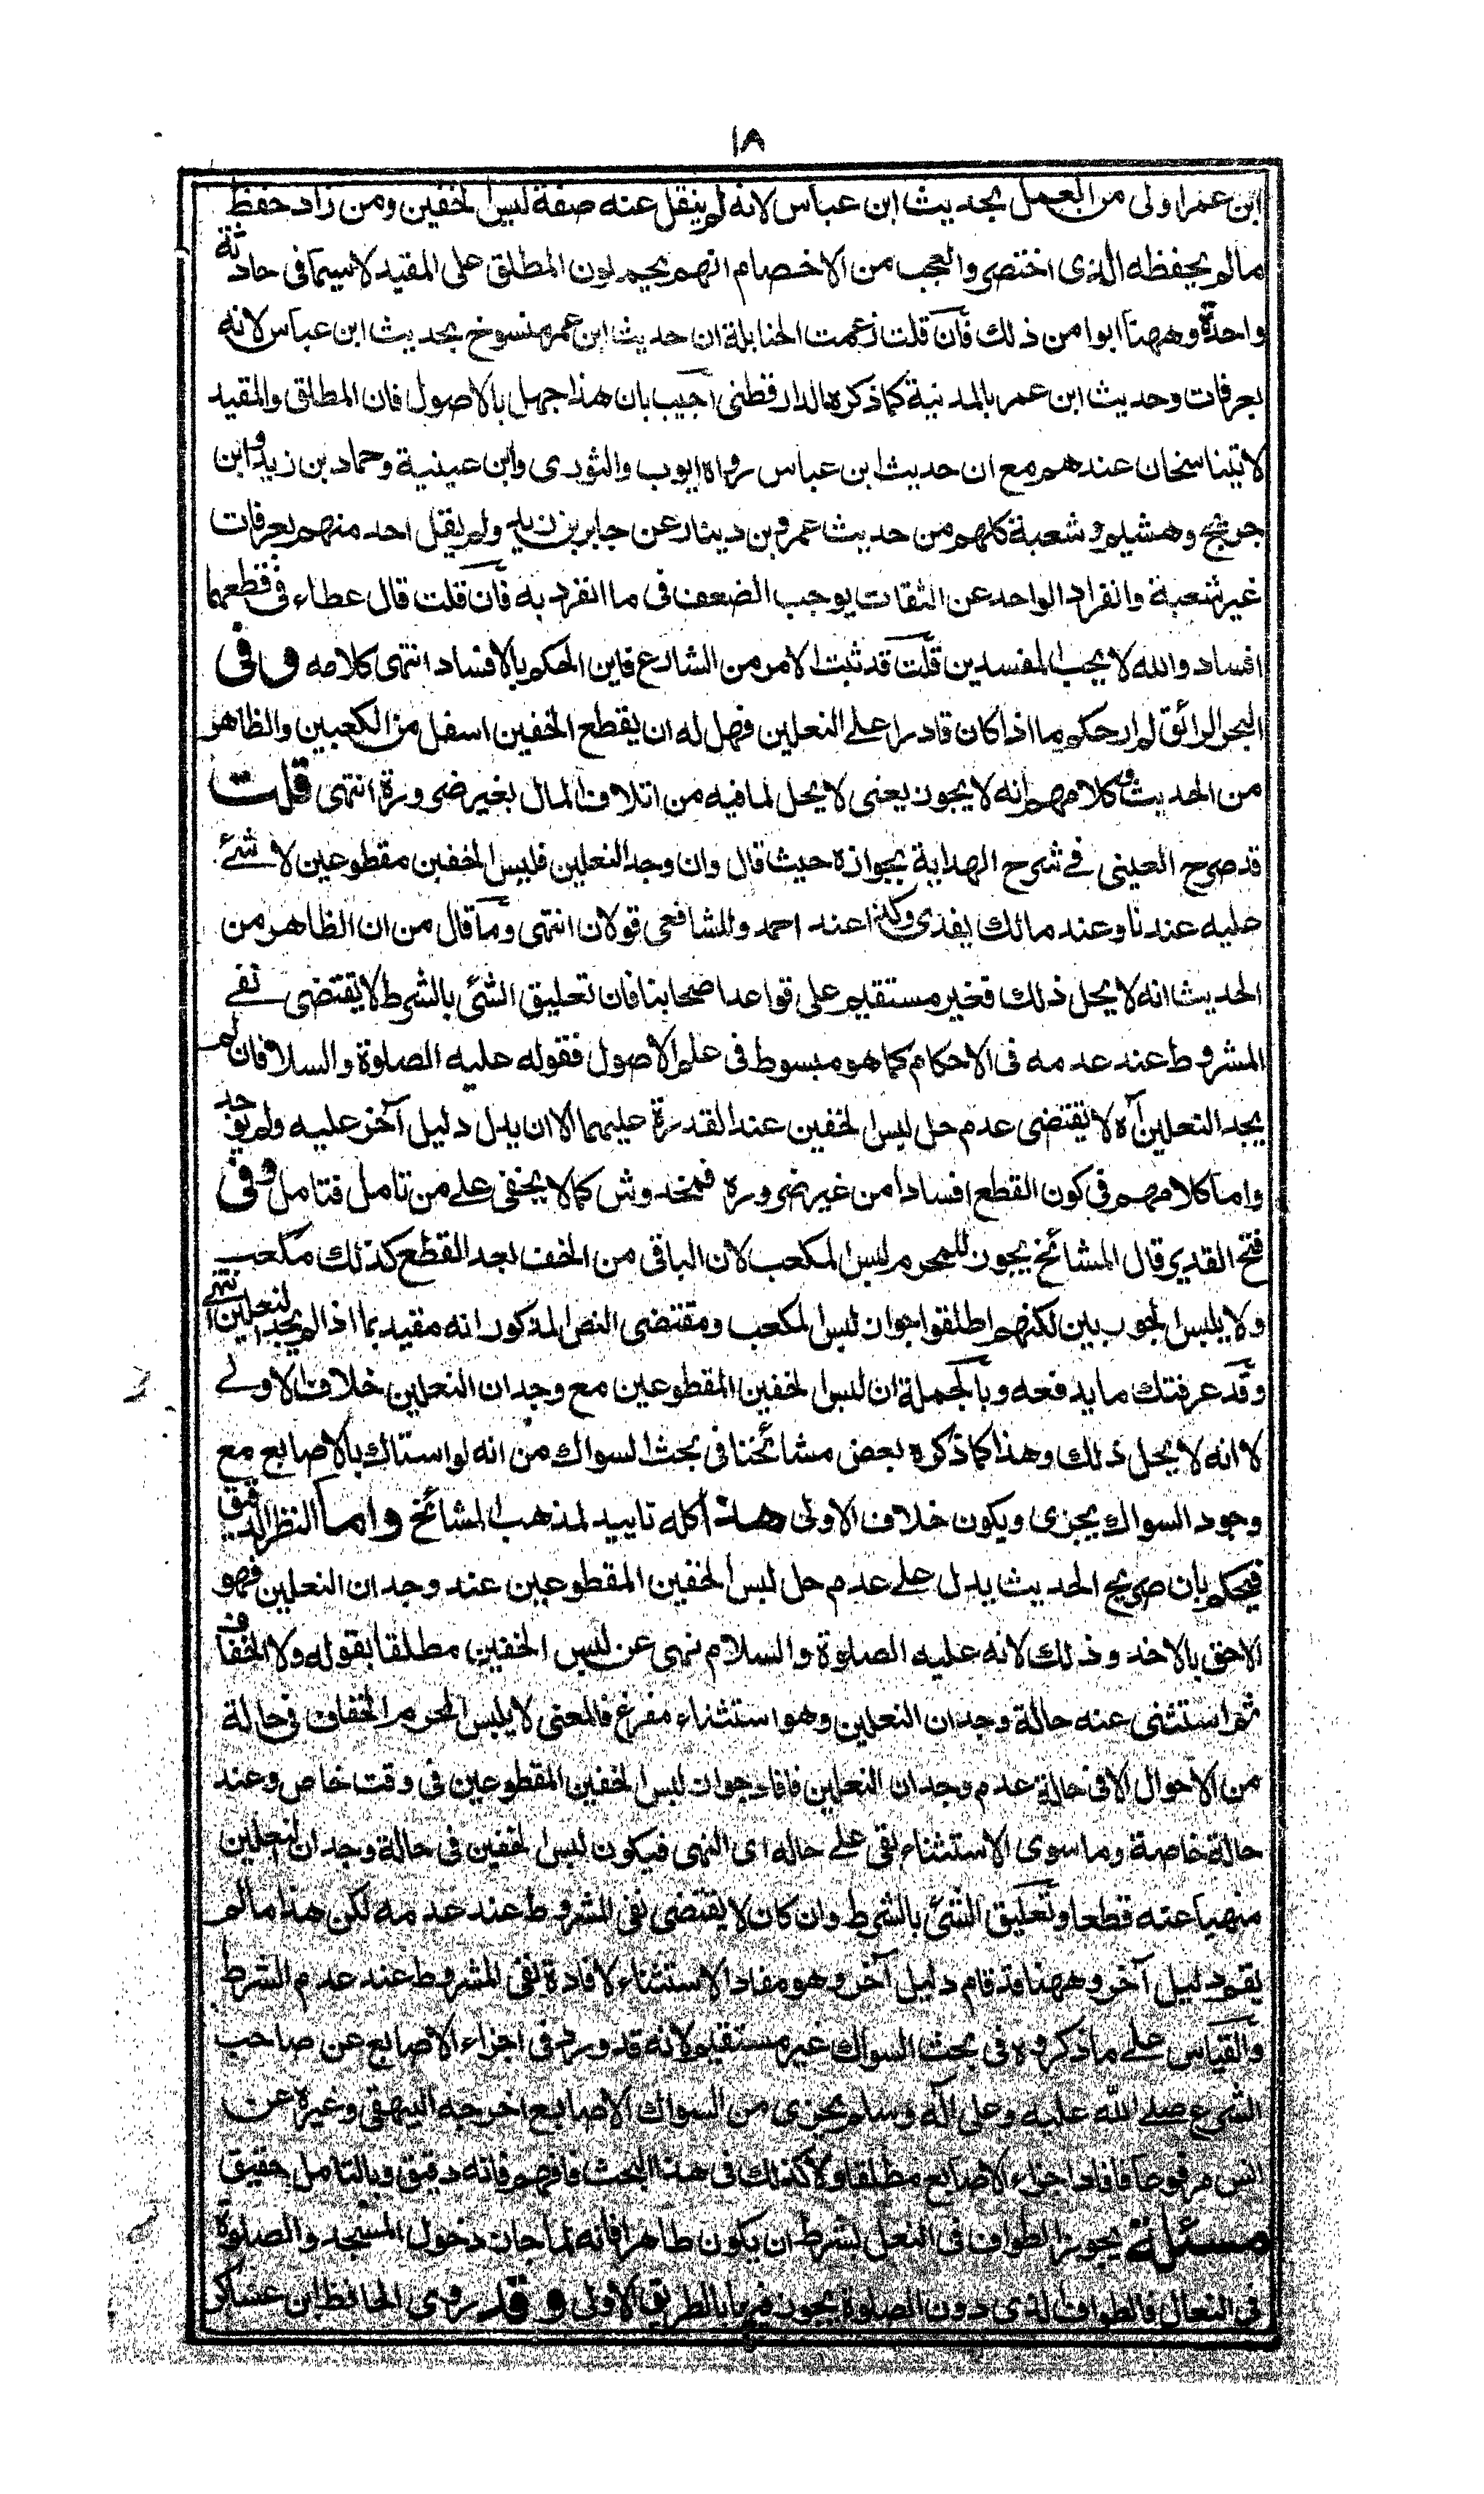 ١٨
ابن عمر اولى من العمل بحديث ابن عباس لانه لم ينقل عنه صفة لبس الخفين ومن زاد حفظ
مالم يحفظه الذى اختصر والعجب من الاخصام انهم يحملون المطلق على المقيد لاسيما فى حادثة
واحدة وههنا ابوا من ذلك فان قلت زعمت الحنابلة ان حديث ابن عمر منسوخ بحديث ابن عباس لانه
بعرفات وحديث ابن عمر بالمدينة كما ذكره الدارقطنى اجيب بان هذا جهل بالاصول فان المطلق والمقيد
لا يتناسخان عندهم مع ان حديث ابن عباس رواه ايوب والثورى وابن عيينة وحماد بن زيد وابن
جريج وهشيم وشعبة كلهم من حديث عمرو بن دينار عن جابر بن زيد ولم يقل احد منهم بعرفات
غير شعبة وانفراد الواحد عن الثقات يوجب الضعف فى ما انفرد به فان قلت قال عطاء فى قطعهما
افساد والله لا يحب المفسدين قلت قد ثبت الامر من الشارع فاين الحكم بالافساد انتهى كلامه وفى
البحر الرائق لم ار حكم ما اذا كان قادرا على النعلين فهل له ان يقطع الخفين اسفل من الكعبين والظاهر
من الحديث وكلامهم انه لا يجوز يعنى لا يحل لما فيه من اتلاف المال بغير ضرورة انتهى قلت
قد صرح العينى فے شرح الهداية بجوازه حيث قال وان وجد النعلين فلبس الخفين مقطوعين لا شئ
عليه عندنا وعند مالك يفدى وكذا عند احمد وللشافعى قولان انتهى وما قال من ان الظاهر من
الحديث انه لا يحل ذلك فغير مستقيم على قواعد اصحابنا فان تعليق الشئ بالشرط لا يقتضى نفے
المشروط عند عدمه فى الاحكام كما هو مبسوط فى علم الاصول فقوله عليه الصلوة والسلام فان لم
يجد النعلين آه لا يقتضى عدم حل لبس الخفين عند القدرة عليهما الا ان يدل دليل آخر عليه ولم يوجد
واما كلامهم فى كون القطع افسادا من غير ضرورة فمخدوش كما لا يخفى على من تامل فتامل وفى
فتح القدير قال المشائخ يجوز للمحرم لبس المكعب لان الباقى من الخف بعد القطع كذلك مكعب
ولا يلبس الجوربين لكنهم اطلقوا جواز لبس المكعب ومقتضى النص المذكور انه مقيد بما اذا لم يجد النعلين انتهى
وقد عرفتك ما يدفعه وبالجملة ان لبس الخفين المقطوعين مع وجدان النعلين خلاف الاولے
لا انه لا يحل ذلك وهذا كما ذكره بعض مشائخنا فى بحث السواك من انه لو استاك بالاصابع مع
وجود السواك يجزى ويكون خلاف الاولى هذا كله تاييد لمذهب المشائخ واما النظر الدقيق
فيحكم بان صريح الحديث يدل على عدم حل لبس الخفين المقطوعين عند وجدان النعلين فهو
الاحق بالاخذ وذلك لانه عليه الصلوة والسلام نهى عن لبس الخفين مطلقا بقوله ولا الخفاف
ثم استثنى عنه حالة وجدان النعلين وهو استثناء مفرغ فالمعنى لا يلبس المحرم الخفاف فى حالة
من الاحوال الا فى حالة عدم وجدان النعلين فافاد جواز لبس الخفين المقطوعين فى وقت خاص وعند
حالة خاصة وما سوى الاستثناء بقى على حاله اى النهى فيكون لبس الخفين فى حالة وجدان النعلين
منهيا عنه قطعا وتعليق الشئ بالشرط وان كان لا يقتضى نفى المشروط عند عدمه لكن هذا مالم
يقم دليل آخر وههنا قد قام دليل آخر وهو مفاد الاستثناء لافادة نفى المشروط عند عدم الشرط
والقياس على ما ذكروه فى بحث السواك غير مستقيم لانه قد ورد فى اجزاء الاصابع عن صاحب
الشرع صلى الله عليه وعلى آله وسلم يجزى من السواك الاصابع اخرجه البيهقى وغيره عن
انس مرفوعا فافاد اجزاء الاصابع مطلقا ولا كذلك فى هذا البحث فافهم فانه دقيق وبالتامل حقيق
مسئلة يجوز الطواف فى النعل بشرط ان يكون طاهرا فانه لما جاز دخول المسجد والصلوة
فى النعال فالطواف الذى دون الصلوة يجوز فيها بالطريق الاولى وقد روى الحافظ ابن عساكر